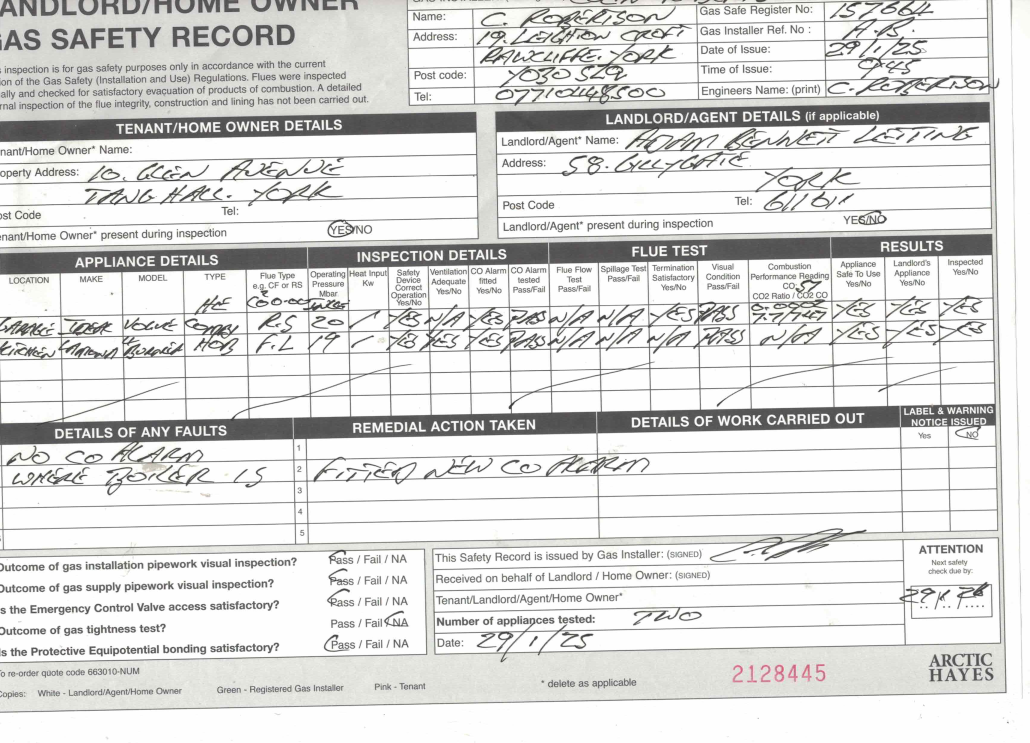 LANDLORD/HOME OWNER
GAS SAFETY RECORD
inspection is for gas safety purposes only in accordance with the current
of the Gas Safety (Installation and Use) Regulations. Flues were inspected
and checked for satisfactory evacuation of products of combustion. A detailed
inspection of the flue integrity, construction and lining has not been carried out.
Name: C. ROBERTSON
Address: 19. LEIGHTON CROFT
RAWCLIFFE. YORK
Post code: YO30
Tel: 07710448500
Gas Safe Register No: 157664
Gas Installer Ref. No : A.B.
Date of Issue: 29/1/25
Time of Issue: 9.45
Engineers Name: (print) C. ROBERTSON
TENANT/HOME OWNER DETAILS
Tenant/Home Owner* Name:
Property Address: 10. GLEN AVENUE
TANG HALL. YORK
Post Code Tel:
Tenant/Home Owner* present during inspection YES/NO
LANDLORD/AGENT DETAILS (if applicable)
Landlord/Agent* Name: ADAM BENNETT LETTING
Address: 58. GILLYGATE
YORK
Post Code Tel: 611611
Landlord/Agent* present during inspection YES/NO
APPLIANCE DETAILS INSPECTION DETAILS FLUE TEST RESULTS
LOCATION MAKE MODEL TYPE Flue Type e.g. CF or RS Operating Pressure Mbar. Heat Input Kw Safety Device Correct Operation Yes/No Ventilation Adequate Yes/No CO Alarm fitted Yes/No CO Alarm tested Pass/Fail Flue Flow Test Pass/Fail Spillage Test Pass/Fail Termination Satisfactory Yes/No Visual Condition Pass/Fail Combustion Performance Reading CO: 51 CO2 Ratio / CO2 CO Appliance Safe To Use Yes/No Landlord's Appliance Yes/No Inspected Yes/No
HE
IDEAL COMBY R.S 20 / YES N/A YES PASS N/A N/A YES PASS YES YES YES
KITCHEN 4 BURNER HOB F.L 19 / YES YES YES PASS N/A N/A N/A PASS N/A YES YES YES
DETAILS OF ANY FAULTS REMEDIAL ACTION TAKEN DETAILS OF WORK CARRIED OUT LABEL & WARNING NOTICE ISSUED
Yes NO
NO CO ALARM 1
WHERE BOILER IS 2 FITTED NEW CO ALARM
3
4
5
Outcome of gas installation pipework visual inspection? Pass / Fail / NA
Outcome of gas supply pipework visual inspection? Pass / Fail / NA
Is the Emergency Control Valve access satisfactory? Pass / Fail / NA
Outcome of gas tightness test? Pass / Fail / NA
Is the Protective Equipotential bonding satisfactory? Pass / Fail / NA
This Safety Record is issued by Gas Installer: (SIGNED)
Received on behalf of Landlord / Home Owner: (SIGNED)
Tenant/Landlord/Agent/Home Owner*
Number of appliances tested: TWO
Date: 29/1/25
ATTENTION
Next safety
check due by:
29/1/26
To re-order quote code 663010-NUM
Copies: White - Landlord/Agent/Home Owner Green - Registered Gas Installer Pink - Tenant
* delete as applicable
2128445
ARCTIC
HAYES